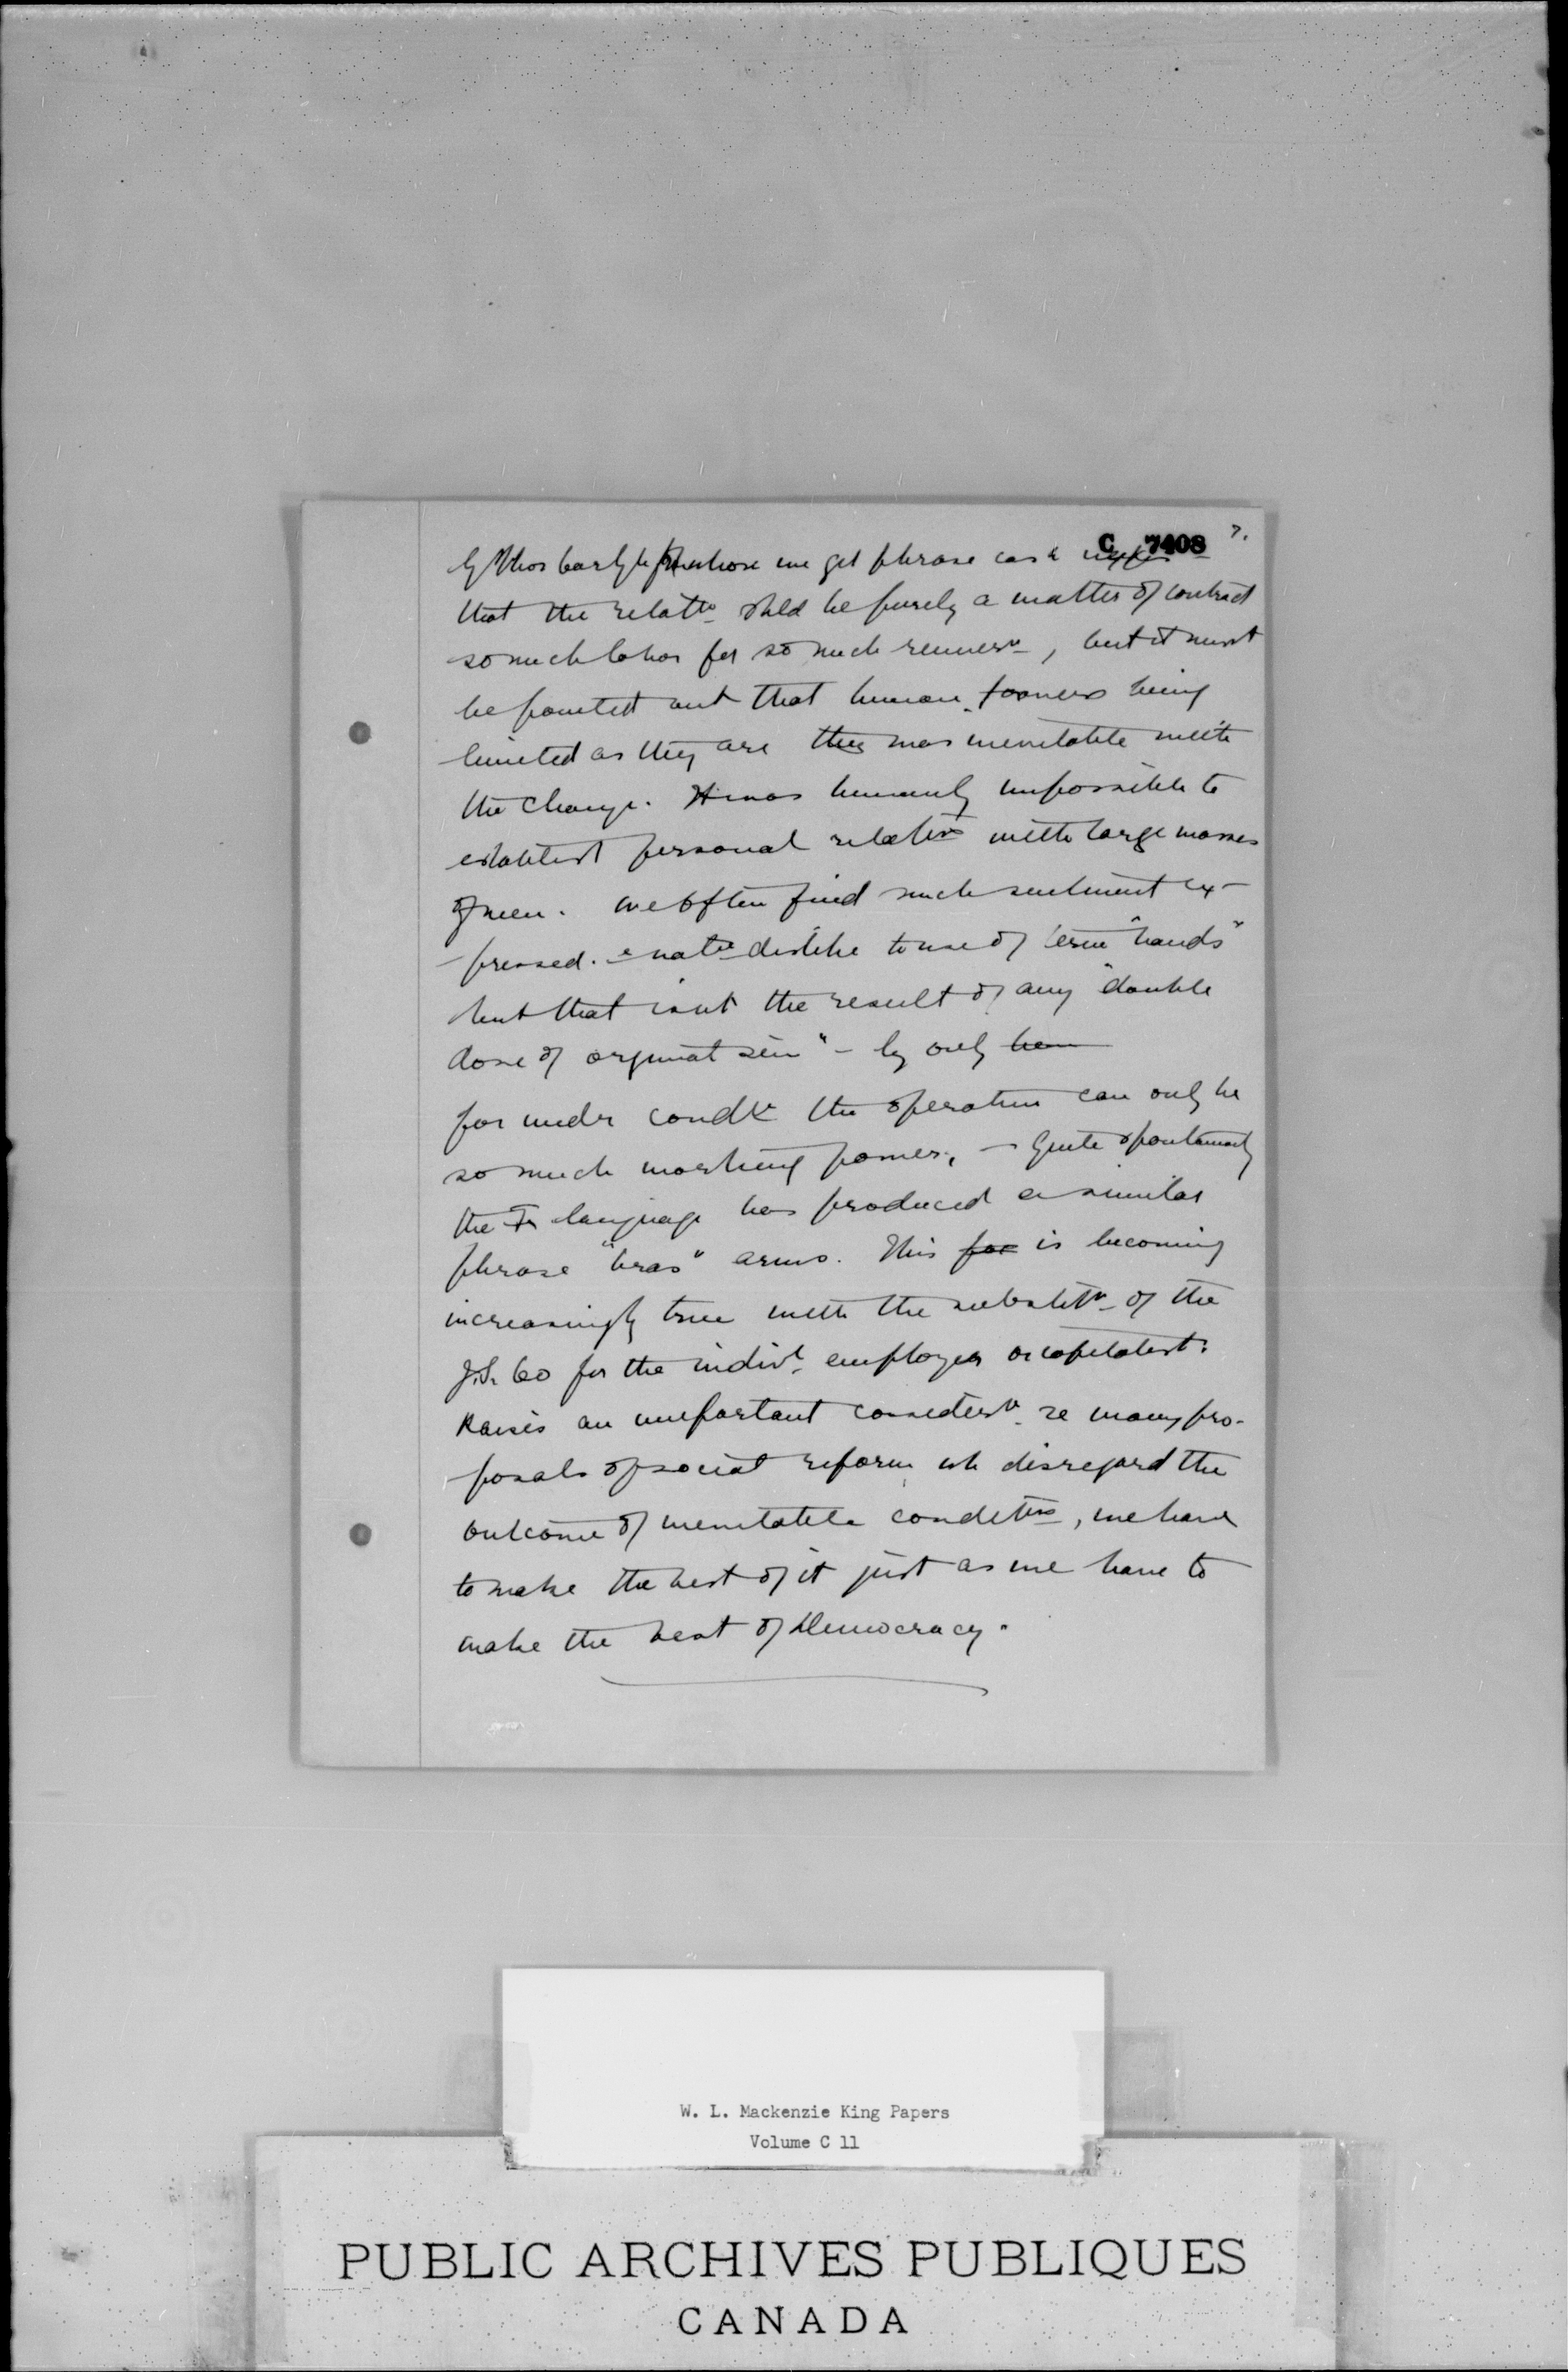 C 7408
7.
by Thos Carlyle from whose we get phrase cash nexus
that the relatn shld be purely a matter of contract
so much labor for so much remunern, but it must
be pointed out that human powers being
limited as they are this was inevitable with
the change. It was humanly impossible to
establish personal relatns with large masses
of men. We often find such sentiment ex-
pressed. e natl dislike to use of term "hands"
but that isnt the result of any "double
dose of original sin" -
for under condts the operative can only be
so much working power, - Quite spontaneously
the Fr language has produced a similar
phrase "bras" arms. This for is becoming
increasingly true with the substitn of the
J.S. Co for the indivl employer or capitalist.
Raises an important considern re many pro-
posals of social reform wh disregard the
outcome of inevitable conditns, we have
to make the best of it just as we have to
make the best of Democracy.
W. L. Mackenzie King Papers
Volume C 11
PUBLIC ARCHIVES PUBLIQUES
CANADA